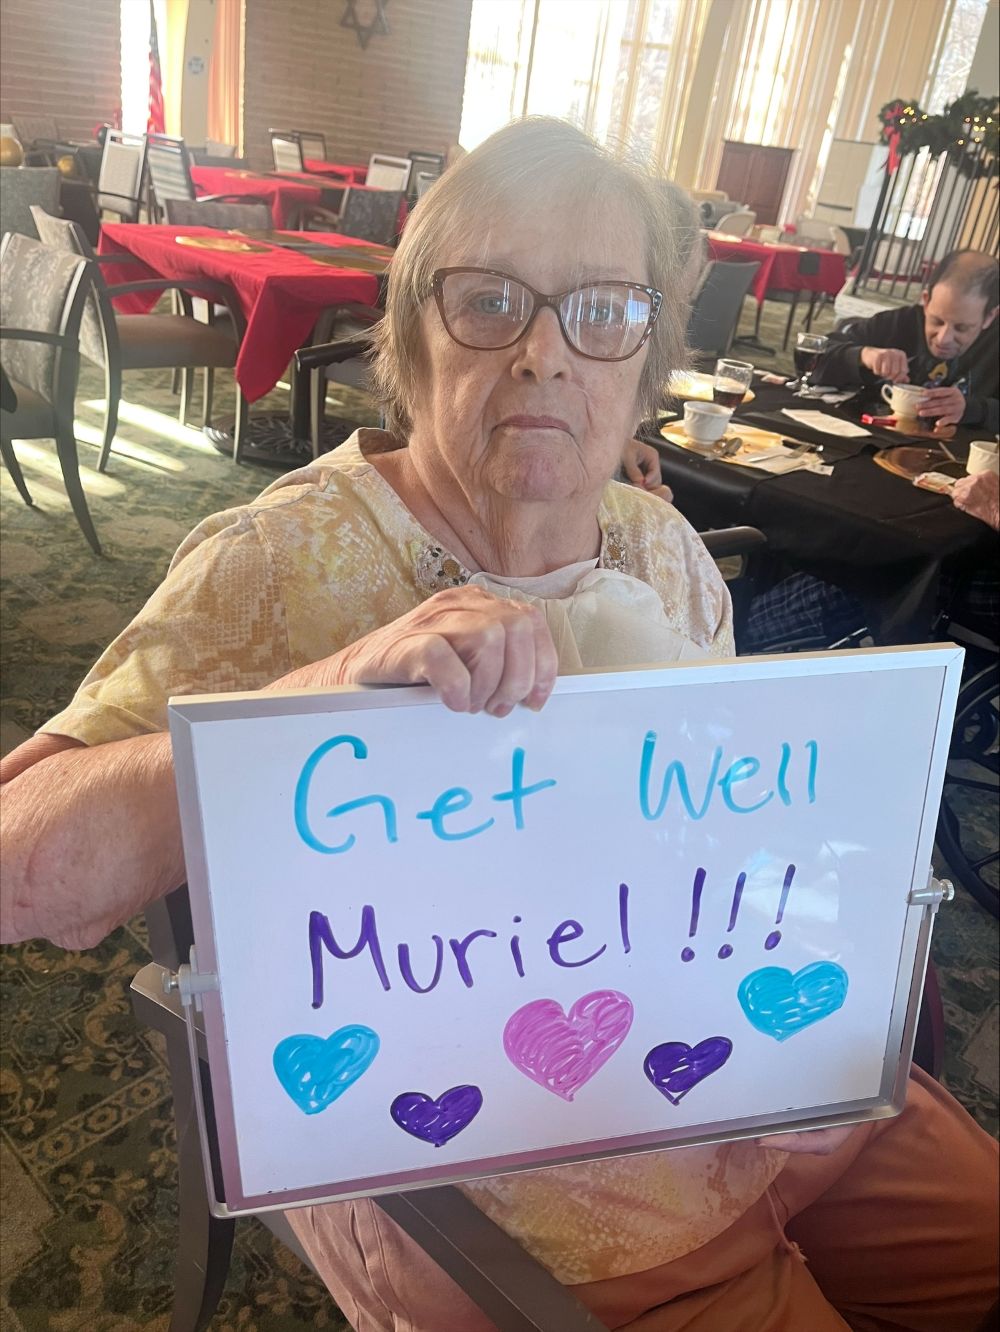 Get Well
Muriel!!!